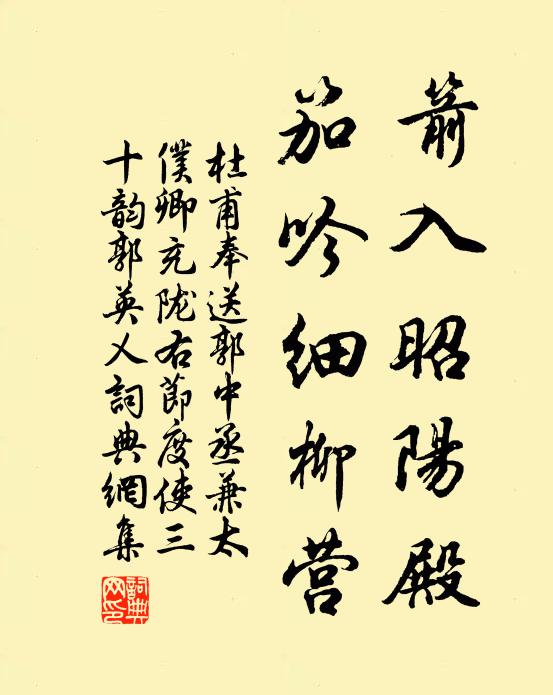 箭入昭陽殿
笳吟细柳营
杜甫奉送郭中丞兼太
僕卿充陇右節度使三
十韵郭英乂詞典網集
詞典網印